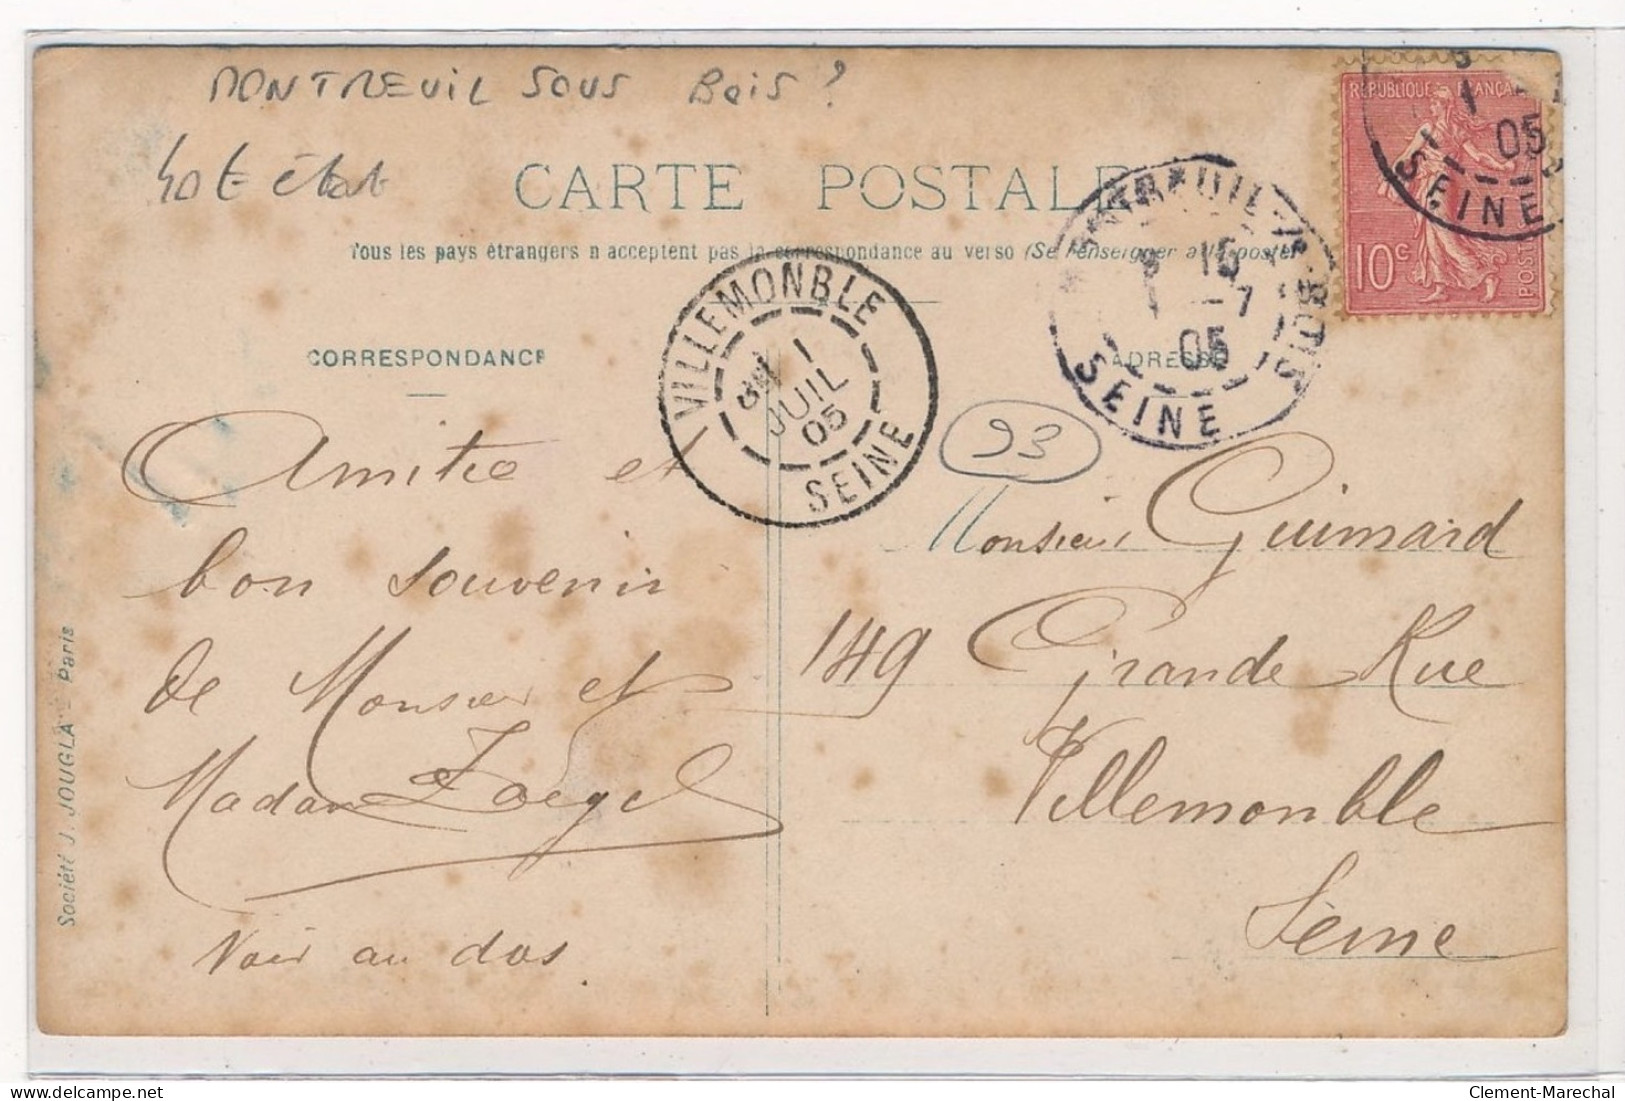 MONTREUIL SOUS Bois ?
état
CARTE POSTALE
Tous les pays étrangers n'acceptent pas la correspondance au verso (Se renseigner à la poste)
RÉPUBLIQUE FRANÇAISE
10c
POSTES
05
SEINE
MONTREUIL-S-BOIS
15
1-7
05
SEINE
VILLEMONBLE
1
JUIL
05
SEINE
CORRESPONDANCE
ADRESSE
93
Amitié et
bon souvenir
de Monsieur et
Madame
Voir au dos
Monsieur Guimard
149 Grande Rue
Villemonble
Seine
Société J. JOUGLA - Paris
Clement-Marechal